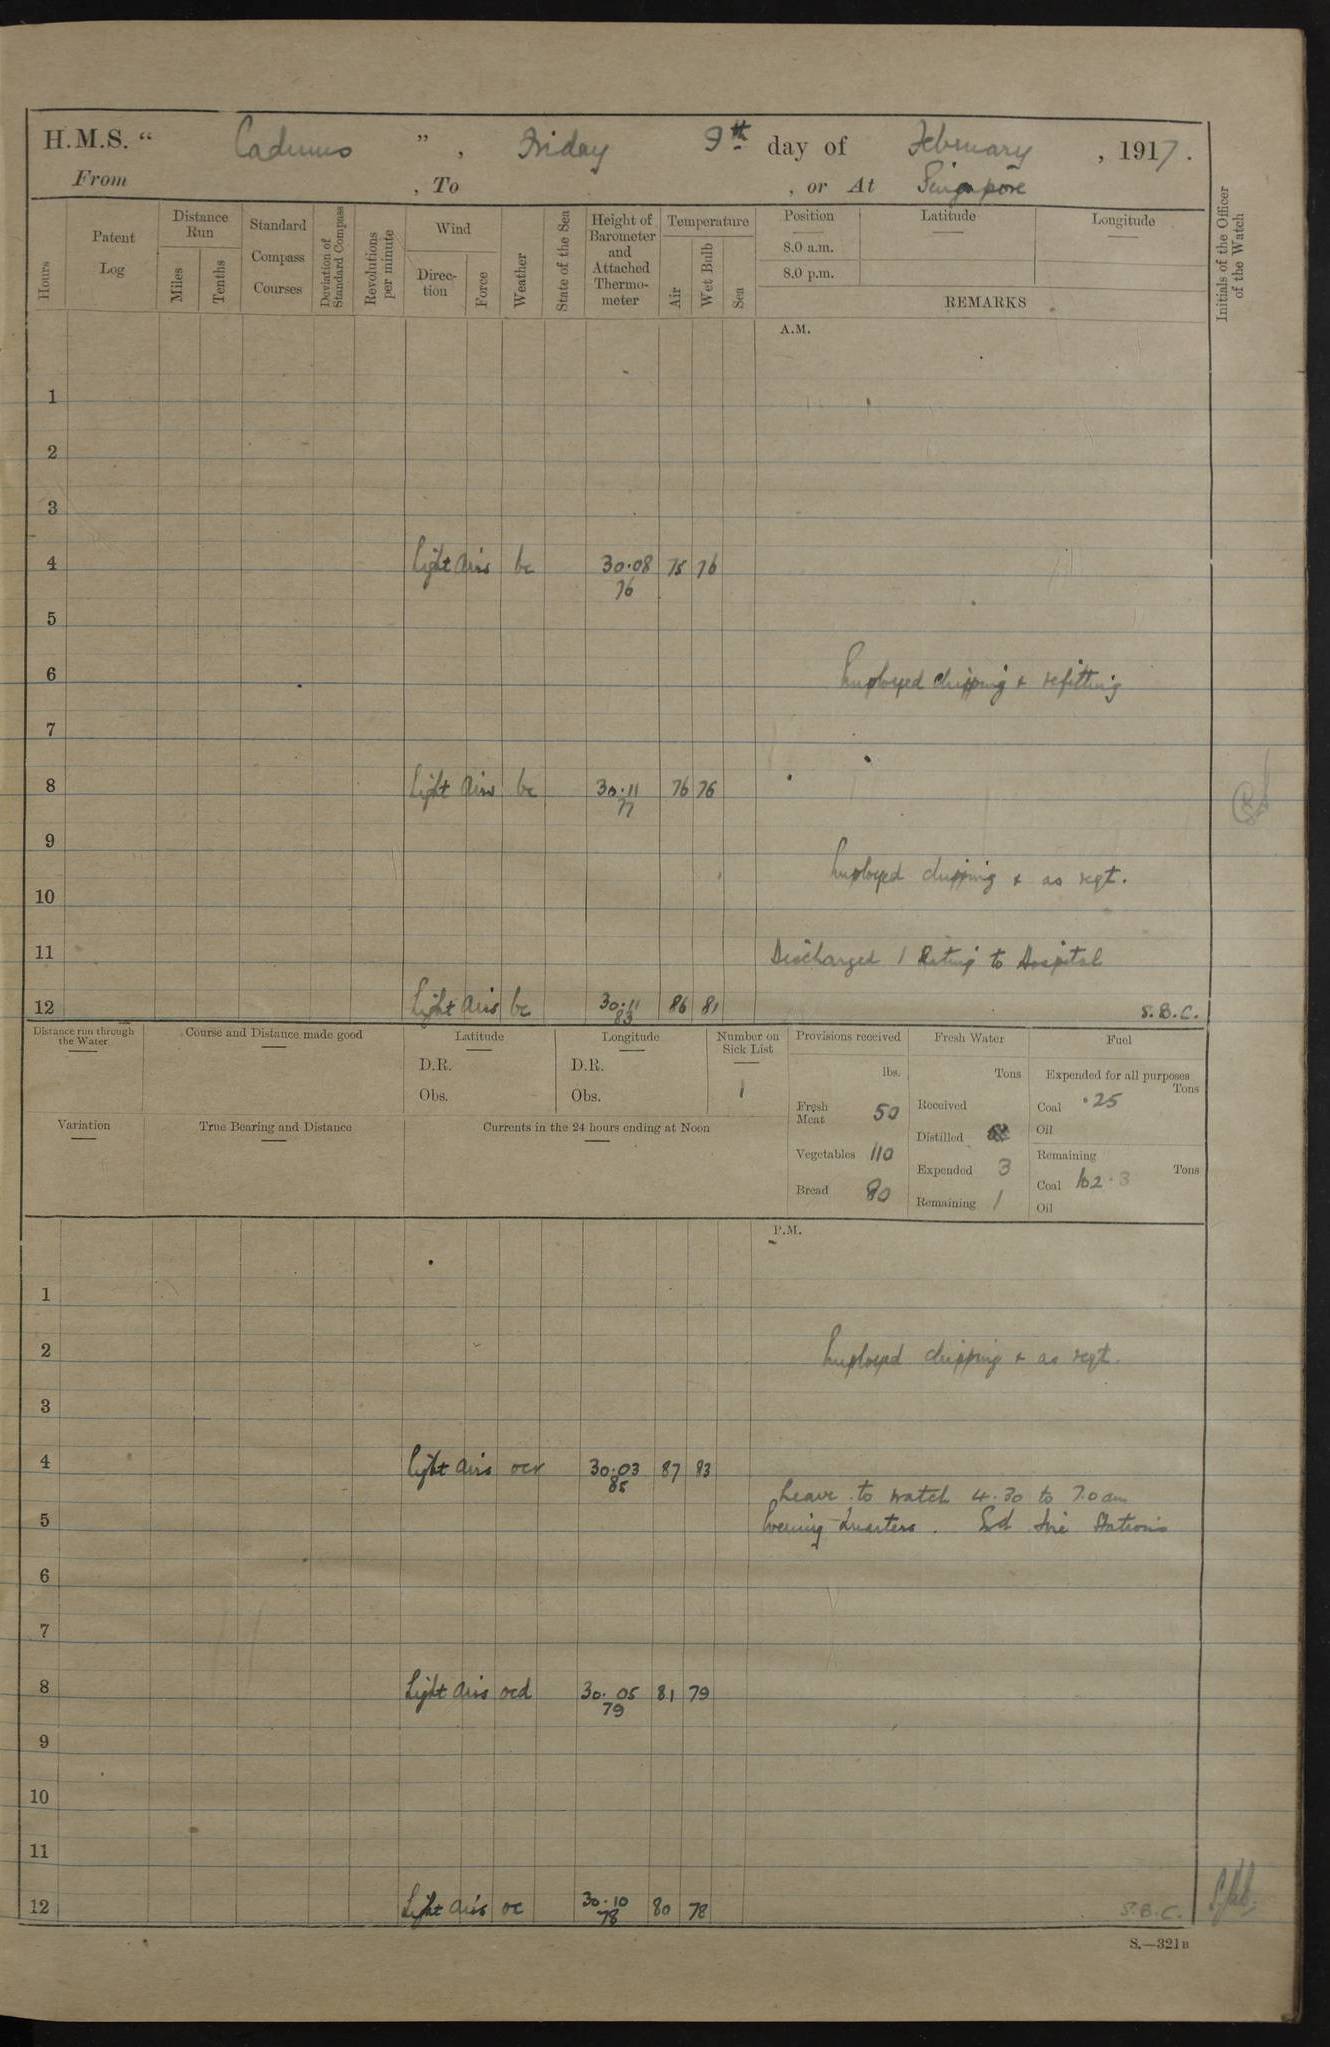 H.M.S. “ Cadmus ” , Friday 9th day of February , 1917.
From , To , or At Singapore
Hours
Patent Log
Distance Run
Miles
Tenths
Standard Compass Courses
Deviation of Standard Compass
Revolutions per minute
Wind
Direc-tion
Force
Weather
State of the Sea
Height of Barometer and Attached Thermo-meter
Temperature
Air
Wet Bulb
Sea
Position
8.0 a.m.
8.0 p.m.
Latitude
Longitude
REMARKS
Initials of the Officer of the Watch
A.M.
1
2
3
4 light airs bc 30.08 75 76
76
5
6 Employed chipping & refitting
7
8 light airs bc 30.11 76 76
77
9
Employed chipping & as reqt.
10
11 Discharged 1 Rating to Hospital
12 light airs bc 30.11 86 81 S.B.C.
83
Distance run through the Water
Course and Distance made good
Latitude
D.R.
Obs.
Longitude
D.R.
Obs.
Number on Sick List
1
Provisions received
lbs.
Fresh Meat 50
Vegetables 110
Bread 80
Fresh Water
Tons
Received
Distilled
Expended 3
Remaining 1
Fuel
Expended for all purposes
Tons
Coal .25
Oil
Remaining
Tons
Coal 102.3
Oil
Variation
True Bearing and Distance
Currents in the 24 hours ending at Noon
P.M.
1
2 Employed chipping & as reqt.
3
4 light airs ocr 30.03 87 83
85
Leave to watch 4.30 to 7.0 am
5 Evening Quarters. Exd fire Stations
6
7
8 Light airs ocd 30.05 81 79
79
9
10
11
12 Light airs oc 30.10 80 78 S.B.C.
78
S.—321B